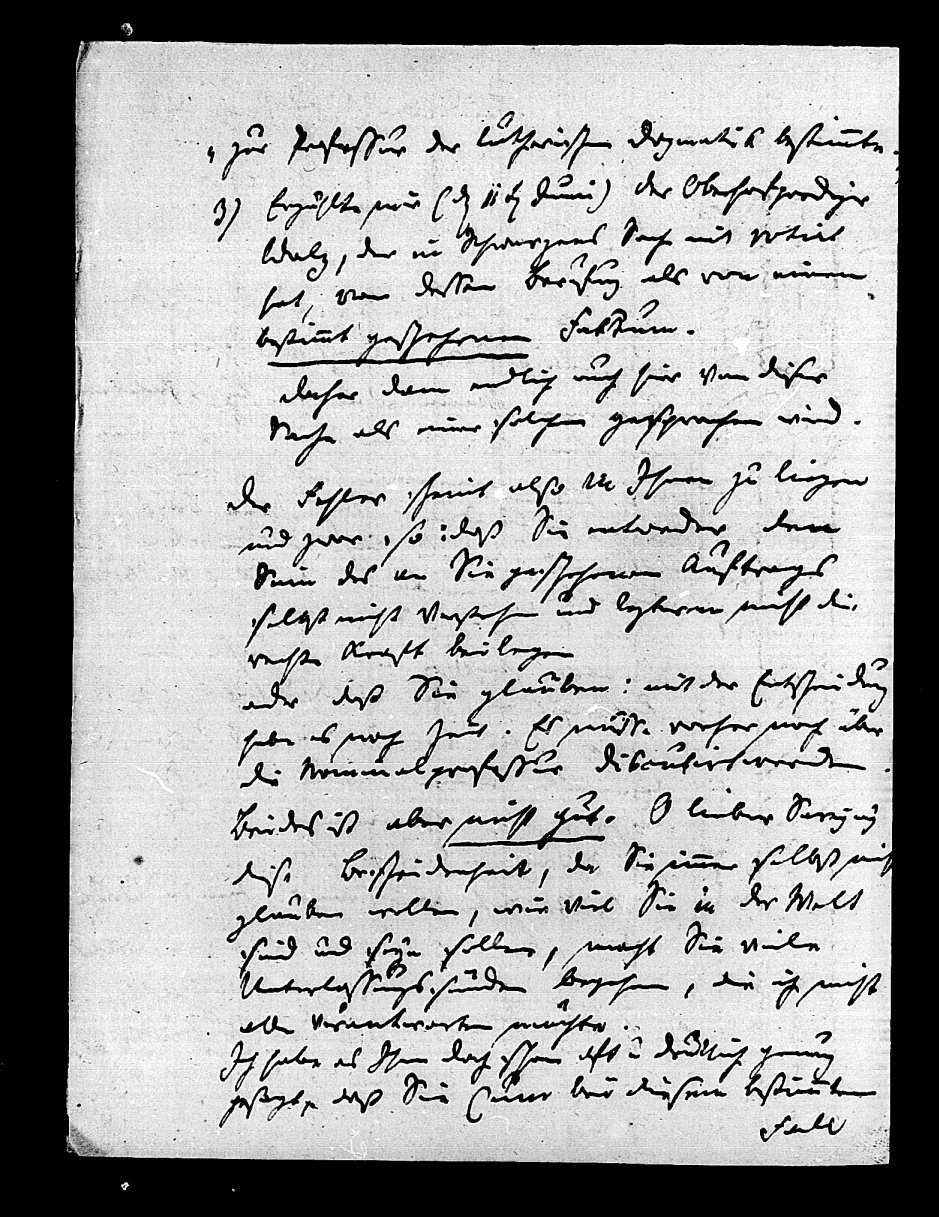 „ zur Professur der lutherischen Dogmatik bestimmte.
3) Erzählte mir (d 11 Juni) der Oberhofprediger
Walz, der in Schwarzens Sach mit votirt
hat, von dessen Berufung als von einem
bestimmt geschehenen Faktum.
daher denn endlich auch hier von dieser
Sache als einer solchen gesprochen wird.
Der Fehler scheint also in Ihnen zu liegen
und zwar so: daß Sie entweder den
Sinn des an Sie geschehenen Auftrags
selbst nicht verstehen und lezterem nicht die
rechte Kraft beilegen
oder daß Sie glauben: mit der Entscheidung
habe es noch Zeit. Es müsse vorher noch über
die Nominalprofessur discutirt werden.
Beides ist aber nicht gut. O lieber
diese Bescheidenheit, da Sie immer selbst nicht
glauben wollen, wie viel Sie in der Welt
sind und seyn sollen, macht Sie viele
Unterlassungssünden begehen, die ich nicht
alle verantworten möchte.
Ich habe es Ihnen doch schon oft u deutlich genug
gesagt, daß Sie bei diesem bestimmten
Fall